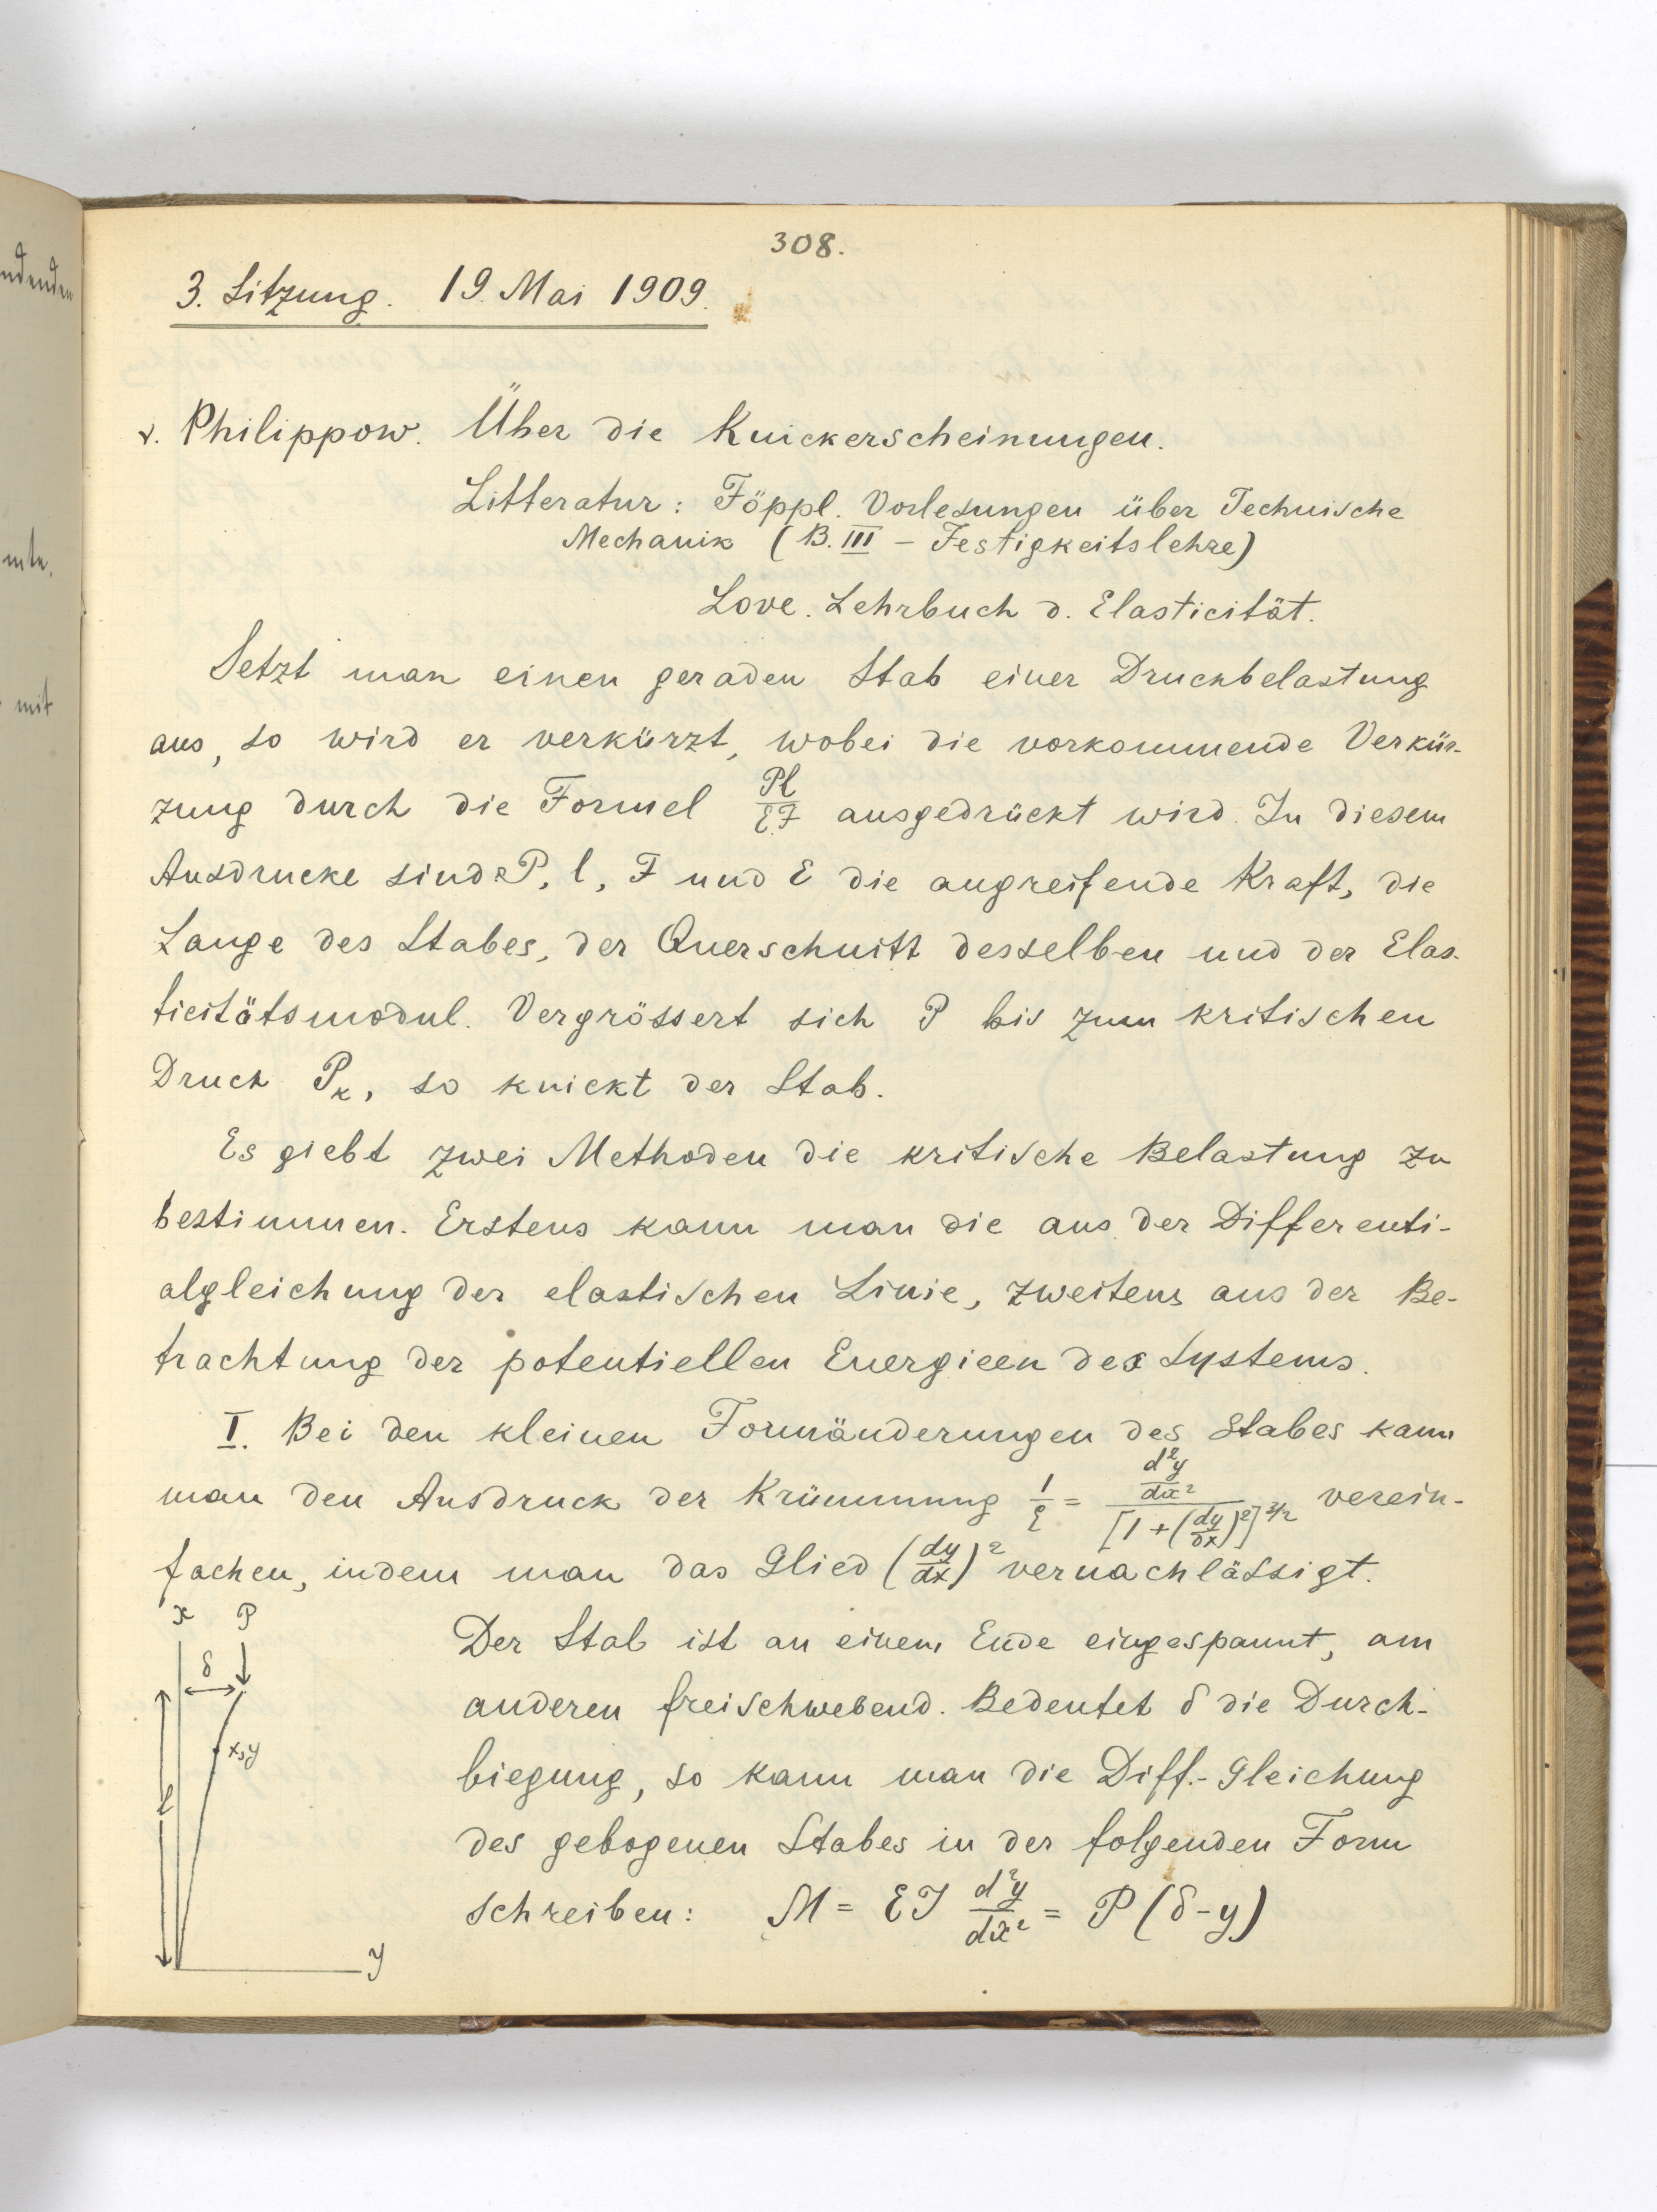 ndenden
mte.
mit
308.
3. Sitzung. 19. Mai 1909.
v. Philippow. Über die Knickerscheinungen.
Litteratur: Föppl. Vorlesungen über Technische
Mechanik (B. III – Festigkeitslehre)
Love. Lehrbuch d. Elasticität.
Setzt man einen geraden Stab einer Druckbelastung
aus, so wird er verkürzt, wobei die vorkommende Verkür-
zung durch die Formel Pl/EF ausgedrückt wird. In diesem
Ausdrucke sind P, l, F und E die angreifende Kraft, die
Lange des Stabes, der Querschnitt desselben und der Elas-
ticitätsmodul. Vergrössert sich P bis zum kritischen
Druck Pₖ, so knickt der Stab.
Es giebt zwei Methoden die kritische Belastung zu
bestimmen. Erstens kann man die aus der Differenti-
algleichung der elastischen Linie, zweitens aus der Be-
trachtung der potentiellen Energieen des Systems.
I. Bei den kleinen Formänderungen des Stabes kann
man den Ausdruck der Krümmung 1/ρ = (d²y/dx²)/[1+(dy/dx)²]^3/2 verein-
fachen, indem man das Glied (dy/dx)² vernachlässigt.
x P
δ
x,y
l
y
Der Stab ist an einem Ende eingespannt, am
anderen freischwebend. Bedeutet δ die Durch-
biegung, so kann man die Diff.-Gleichung
des gebogenen Stabes in der folgenden Form
schreiben: M = EJ d²y/dx² = P(δ-y)